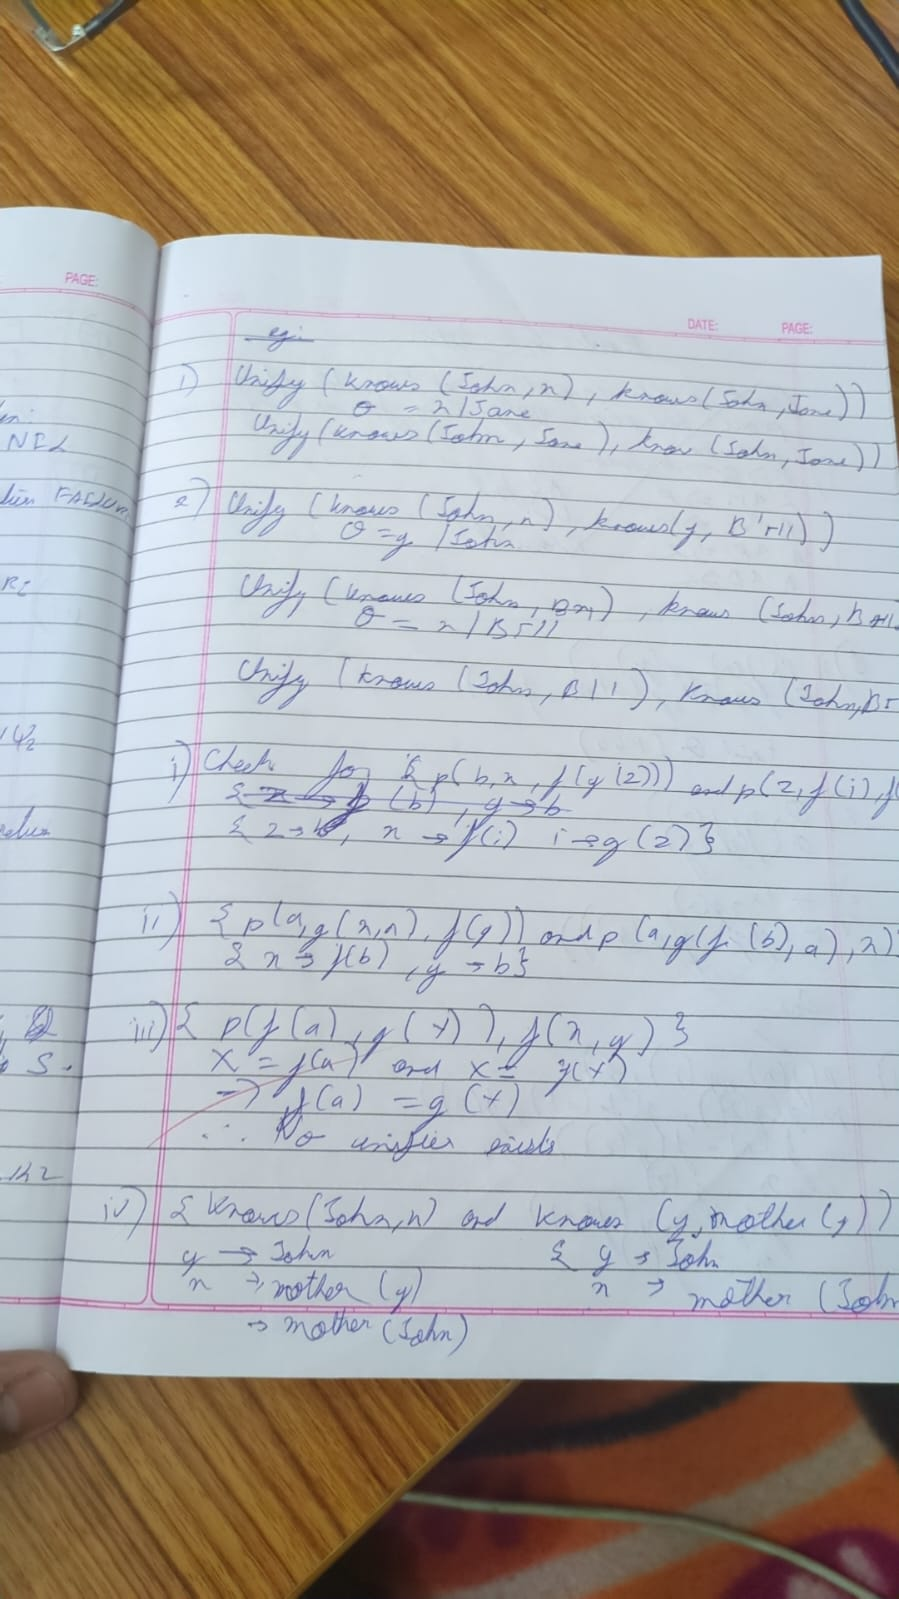 PAGE:
DATE: PAGE:
NIL
FAILURE
S.
eg:
1) Unify (knows (John, x), knows (John, Jane))
θ = x/Jane
Unify (knows (John, Jane), know (John, Jane))
2) Unify (knows (John, x), knows (y, Bill))
θ = y/John
Unify (knows (John, x), knows (John, Bill
θ = x/Bill
Unify (knows (John, Bill), knows (John, Bi
i) Check for {p(b, x, f(g(z))) and p(z, f(i), f(
{z → b, x → f(i) i → g(z)}
ii) {p(a, g(x, x), f(y)) and p(a, g(f(b), a), x)}
{x → f(b), y → b}
iii) { p(f(a), g(Y)), f(x, y) }
X = f(a) and X = g(Y)
⇒ f(a) = g(Y)
∴ No unifier exists
iv) {knows (John, x) and knows (y, mother (y))
y → John { y → John
x → mother (y) x → mother (John
→ mother (John)